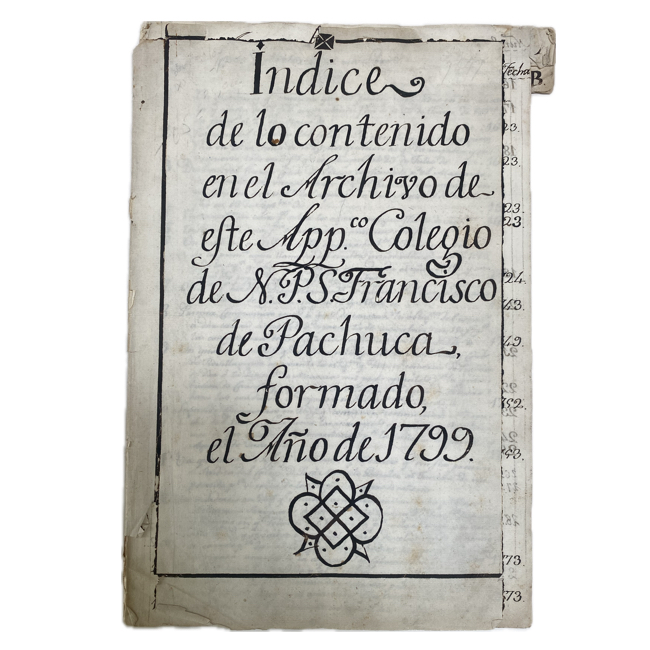 Índice
de lo contenido
en el Archivo de
eſte App.co Colegio
de N.P.S. Francisco
de Pachuca,
formado,
el Año de 1799.
Fecha
B.
23.
23.
23.
23.
24.
43.
49.
52.
53.
73.
73.